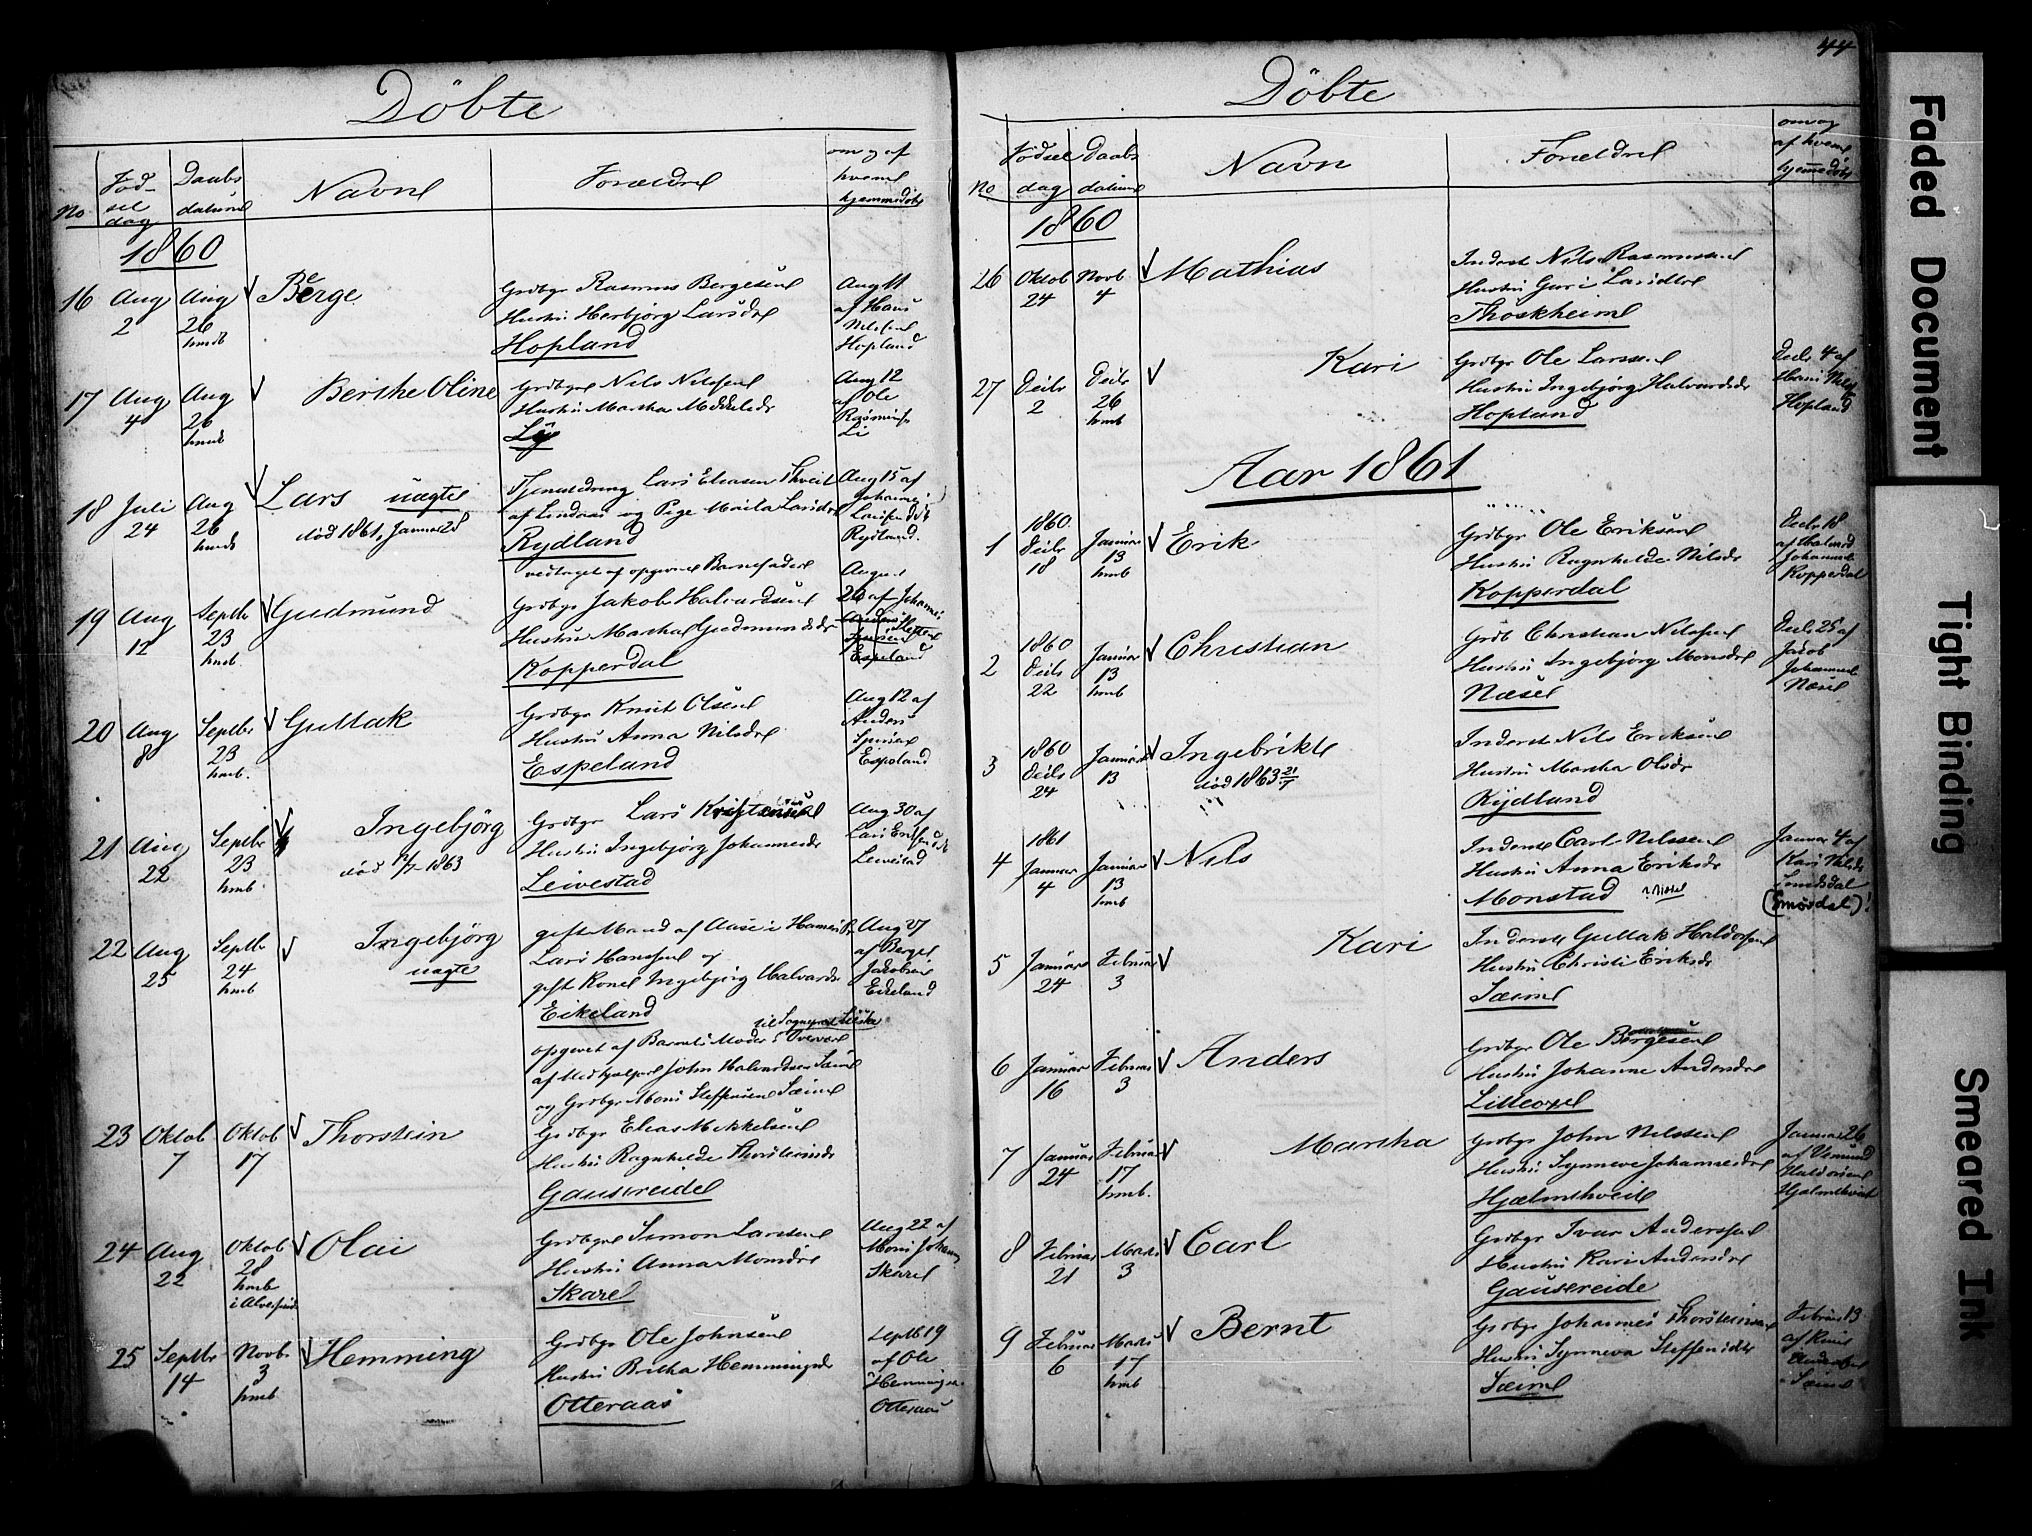 Döbte
No
Fød-
sel
dag
Daabs
datum
Navne
Forældre
om og af
hvem
hjemmedøbt
1860
16 Aug 2 Aug 26 hmdb Berge
Grdbgr Rasmus Bergesen
Hustru Herbjörg Larsdr
Hopland
Aug 11
af Hans
Nilsen
Hopland
17 Aug 4 Aug 26 hmb Berthe Oline
Grdbgr Nils Nilssen
Hustru Martha Mikkelsdr
Aug 12
af Ole
Li
18 Juli 24 Aug 26 hmdb Lars uægte
död 1861, Januar 28
Lars Eliasen Thveit
af Lindaas og Pige Larsdr
Rydland
vedtaget af opgivne Barnefader
Aug 15 af
Johannes
Rydland
19 Aug 12 Septbr 23 hmb. Gudmund
Grdbgr Jakob Halvardsen
Hustru Martha Gudmundsdr
Kopperdal
August
26 af Johannes
Espeland
20 Aug 8 Septbr 23 hmb. Gullak
Grdbgr Knut Olsen
Hustru Anna Nilsdr
Espeland
Aug 12 af
Anders
Espeland
21 Aug 22 Septbr 23 hmb. Ingebjörg
död 1863
Grdbgr Lars
Hustru Ingebjörg Johannesdr
Leivestad
Aug 30 af
Leivestad
22 Aug 25 Septbr 24 hmb Ingebjörg
uægte
gift Mand af Aase i
Lars Hansen og
gift Kone Ingebjörg Halvardsdr
Eikeland
opgivet af Barnets Moder i Overvær
af Medhjelper John Halvardsen Sæim
og Grdbgr Mons Steffensen Sæim
Aug 27
af Berget
Jakobsen
Eikeland
23 Oktob 7 Oktob 17 Thorstein
Grdbgr Elias Mikkelsen
Hustru Ragnhilde Thorsteinsdr
Gausereidet
24 Aug 22 Oktob 28 hmb Olai
Grdbgr Simon Larsen
Hustru Anna Monsdr
Skaret
Aug 22 af
Mons Johann
Skaret
25 Septbr 14 Novb. 3 hmb Hemming
Grdbgr Ole Johnsen
Hustru Britha Hemmingsdr
Otteraas
Septb 19
af Ole
Hemmings.
Otteraas
44
Döbte
No
Fødsel
dag
Daabs
datum
Navn
Forældre
om og
af hvem
hjemmedøbt
1860
26 Oktob 24 Novb. 4 Mathias
Inderst Nils Rasmussen
Hustru Guri Larsdtr
Thoskheim
27 Decbr 2 Decbr 26 hmb Kari
Grdbgr Ole Larssen
Hustru Ingebjörg Halvardsdr
Hopland
Decbr 4 af
Hopland
Aar 1861
1 1860 Decbr 18 Januar 13 hmb Erik
Grdbgr Ole Eriksen
Hustru Ragnhilde Nilsdr
Kopperdal
Decbr 18
af Halvard
Johannes
Kopperdal
2 1860 Decbr 22 Januar 13 hmb Christian
Grdb Christian Nilssen
Hustru Ingebjörg Monsdr
Næset
Decbr 25 af
Jacob
Johannes
Næset
3 1860 Decbr 24 Januar 13 Ingebrikt
död 1863 21/7
Inderst Nils Eriksen
Hustru Martha Olsdr
Rydland
4 1861 Januar 4 Januar 13 hmb Nils
Inderst Carl Nilssen
Hustru Anna Eriksdr
Monstad
Januar 4 af
Kari Nilsdr
(Smørdal)!
5 Januar 24 Februar 3 Kari
Inderst Gullak Haldorsen
Hustru Christi Eriksdr
Sæim
6 Januar 16 Februar 3 Anders
Grdbgr Ole Börgesen
Hustru Johanne Andersdr
Litleoxel
7 Januar 24 Februar 17 hmb. Martha
Grdbgr John Nilssen
Hustru Synneve Johannesdr
Hjælmthveit
Januar 26
af Vemund
Haldorsen
Hjelmthveit
8 Februar 21 Marts 3 Carl
Grdbgr Ivar Anderssen
Hustru Kari Andersdr
Gausereide
9 Februar 6 Marts 17 hmb Bernt
Grdbgr Johannes Thorsteinsen
Hustru Synneva Steffensdtr
Sæim
Februar 13
af Knut
Sæim
Faded Document
Tight Binding
Smeared Ink